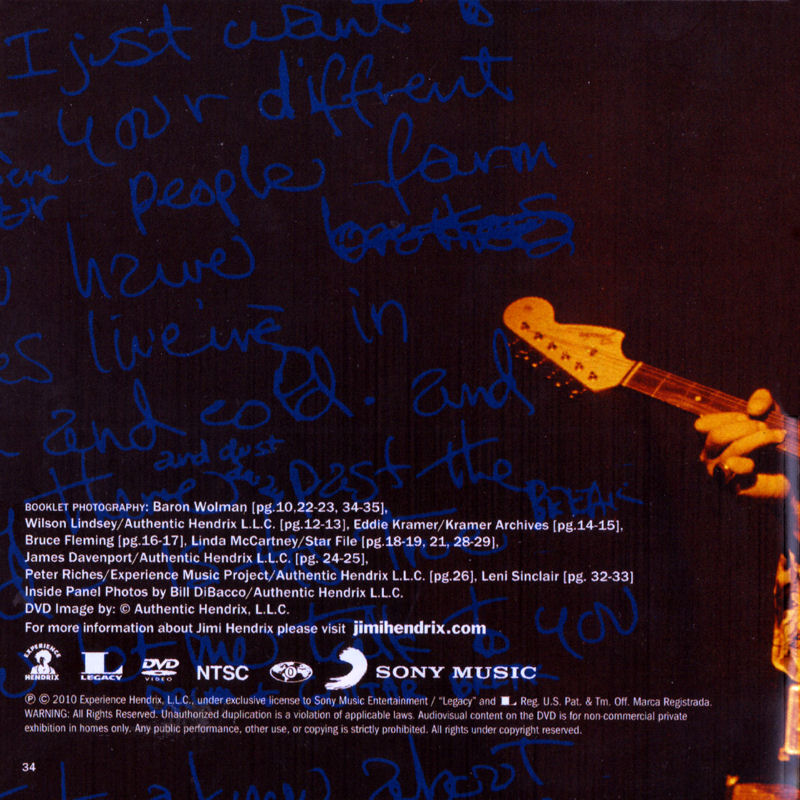 I just want to
your diffrent
people farm
have
live'in in
and cold. and
and dust
past the
BREAK
BOOKLET PHOTOGRAPHY: Baron Wolman [pg.10,22-23, 34-35],
Wilson Lindsey/Authentic Hendrix L.L.C. [pg.12-13], Eddie Kramer/Kramer Archives [pg.14-15],
Bruce Fleming [pg.16-17], Linda McCartney/Star File [pg.18-19, 21, 28-29],
James Davenport/Authentic Hendrix L.L.C. [pg. 24-25],
Peter Riches/Experience Music Project/Authentic Hendrix L.L.C. [pg.26], Leni Sinclair [pg. 32-33]
Inside Panel Photos by Bill DiBacco/Authentic Hendrix L.L.C.
DVD Image by: © Authentic Hendrix, L.L.C.
For more information about Jimi Hendrix please visit jimihendrix.com
let me talk to you
EXPERIENCE HENDRIX L LEGACY DVD VIDEO NTSC 0 SONY MUSIC
℗ © 2010 Experience Hendrix, L.L.C., under exclusive license to Sony Music Entertainment / "Legacy" and L Reg. U.S. Pat. & Tm. Off. Marca Registrada.
WARNING: All Rights Reserved. Unauthorized duplication is a violation of applicable laws. Audiovisual content on the DVD is for non-commercial private
exhibition in homes only. Any public performance, other use, or copying is strictly prohibited. All rights under copyright reserved.
34
about